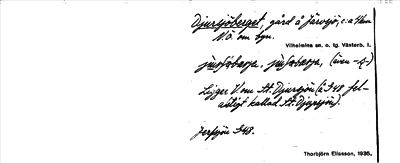 Djursjöberget, gård å Järvsjö, c:a 4 km
N.O. om byn.
Vilhelmina sn. o. tg. Västerb. l.
(även -q-)
Ligger V. om St. Djursjön (å 348 fel-
aktigt kallad St. Djupsjön).
348.
Thorbjörn Eliasson, 1935.